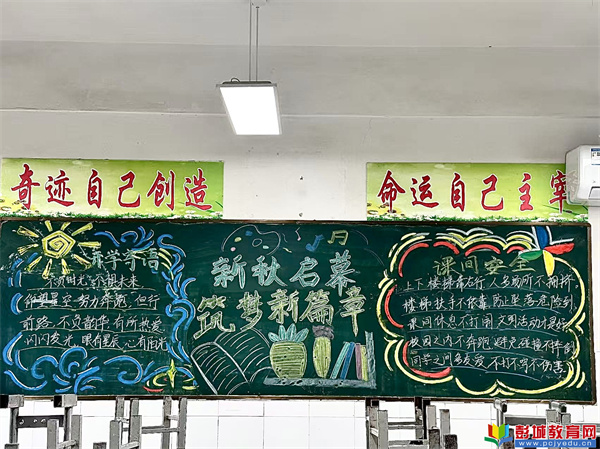 奇迹自己创造
命运自己主宰
开学寄语
不负时光 梦想未来
努力奔跑 但行
前路 不负韶华 有所热爱
闪闪发光 眼有星辰 心有阳光
新秋启幕
筑梦新篇章
课间安全
上下楼梯靠右行 人多场所不拥挤
楼梯扶手不依靠 防止坠落危险到
课间休息不打闹 文明活动才是好
校园之内不奔跑 避免碰撞不摔倒
同学之间多友爱 不打不骂不伤害
彭城教育网
www.pcjyedu.cn